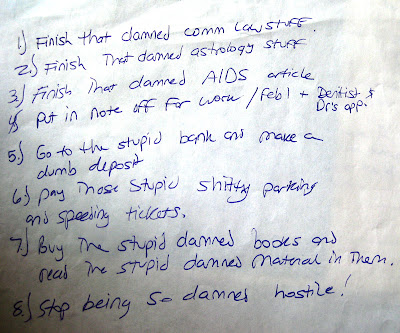 1.) Finish that damned comm law stuff.
2.) Finish That damned astrology stuff
3.) Finish That damned AIDS article
4) put in note off for work / Feb 1 + Dentist &
Dr's app.
5.) Go to the stupid bank and make a
dumb deposit
6.) pay Those stupid shitty parking
and speeding tickets.
7.) Buy The stupid damned books and
read The stupid damned material in Them.
8.) Stop being so damned hostile!